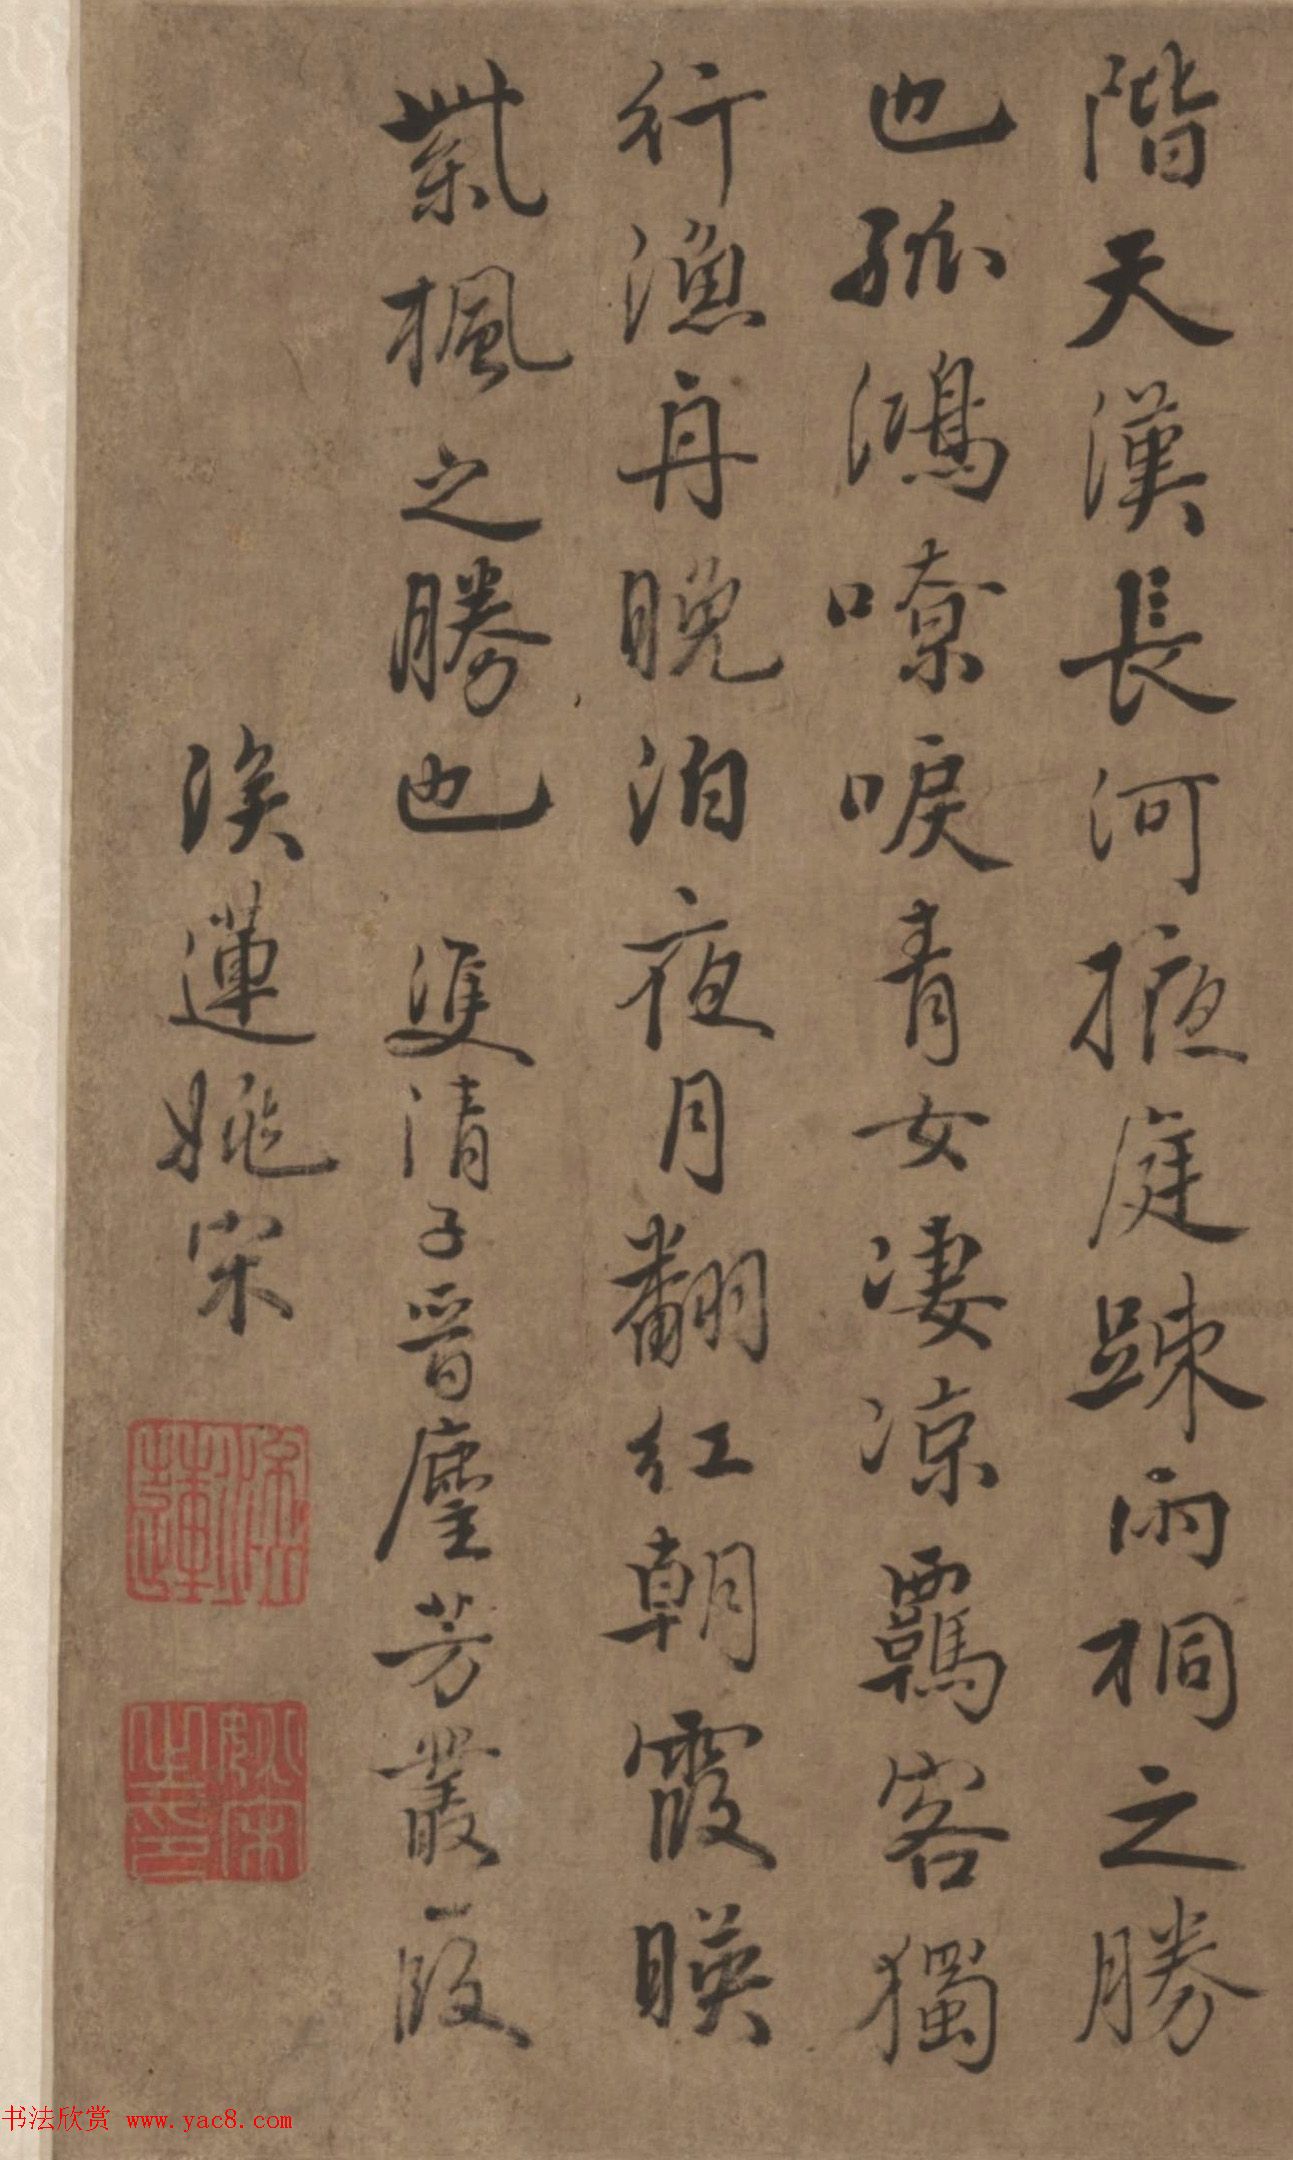 階天漢長河掖庭踈雨桐之勝
也孤鴻嘹唳青女淒凉羈客獨
行漁舟晚泊夜月翻紅朝霞暎
紫楓之勝也 雙清子晉塵芳叢一段
渓蓮姚宋
书法欣赏 www.yac8.com